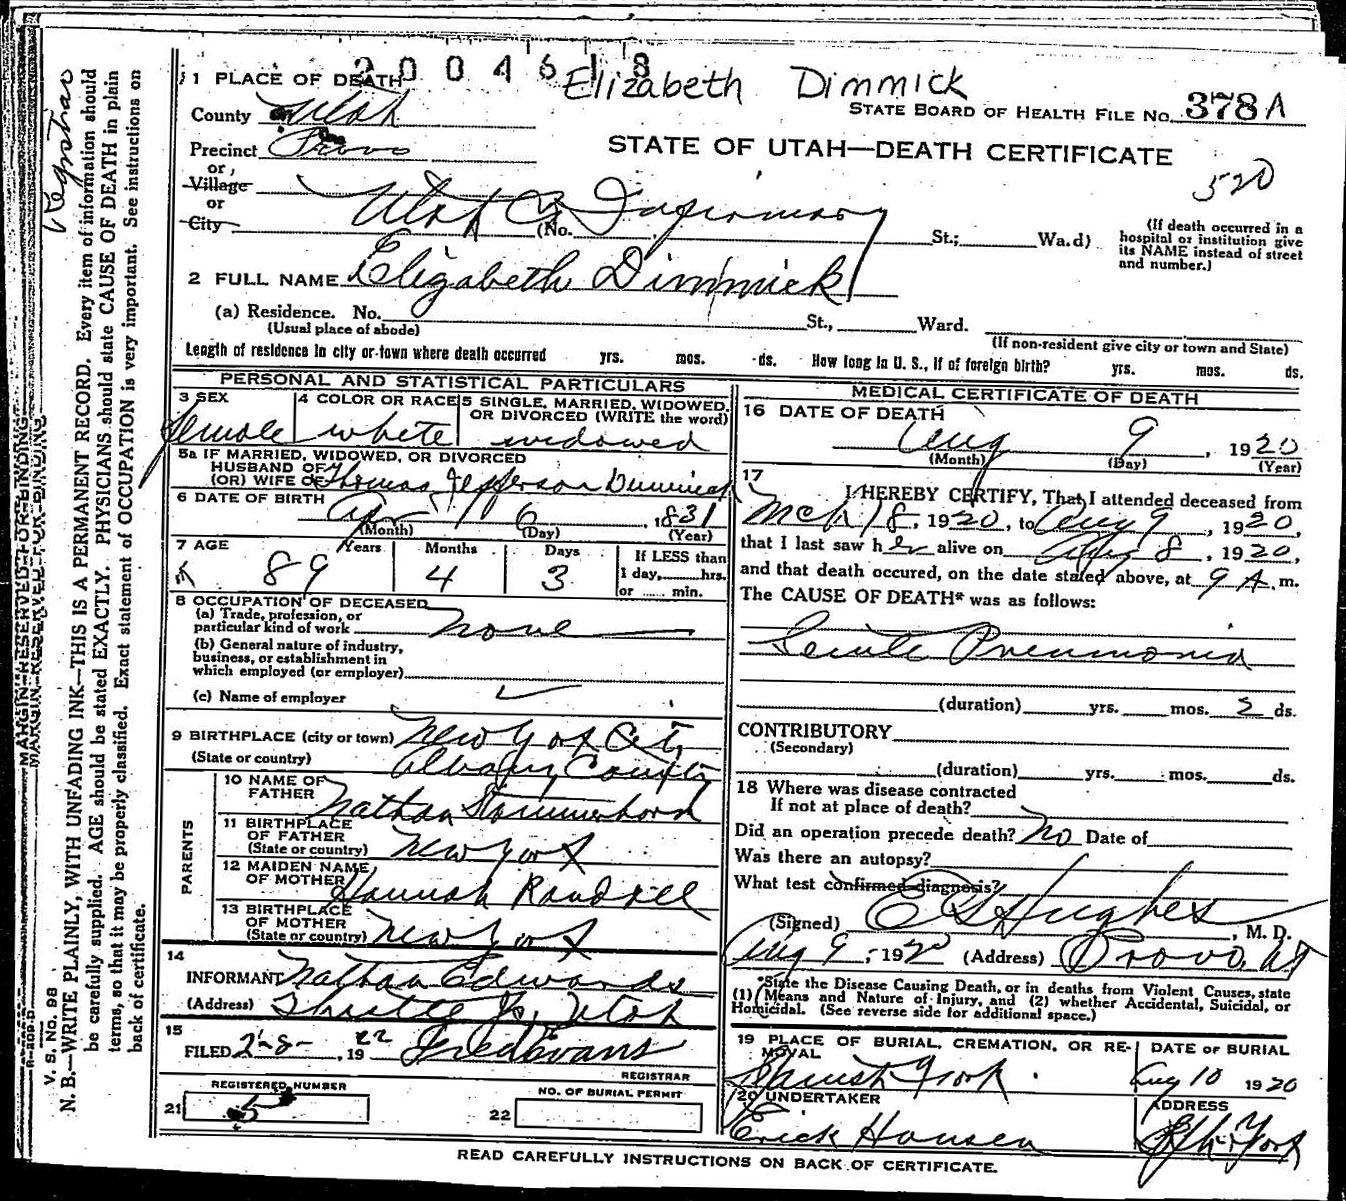 2004618
Elizabeth Dimmick
1 PLACE OF DEATH
STATE BOARD OF HEALTH FILE No. 378 A
County Utah
Precinct Provo
STATE OF UTAH—DEATH CERTIFICATE
520
or
Village
or
City
Utah Co Infirmary
(No. St.; Wa.d)
(If death occurred in a hospital or institution give its NAME instead of street and number.)
2 FULL NAME Elizabeth Dimmick
(a) Residence. No. St., Ward.
(Usual place of abode)
(If non-resident give city or town and State)
Length of residence in city or town where death occurred yrs. mos. ds. How long in U. S., if of foreign birth? yrs. mos. ds.
PERSONAL AND STATISTICAL PARTICULARS
3 SEX
female
4 COLOR OR RACE
white
5 SINGLE, MARRIED, WIDOWED, OR DIVORCED (WRITE the word)
widowed
5a IF MARRIED, WIDOWED, OR DIVORCED
HUSBAND OF
(OR) WIFE OF Thomas Jefferson Dimmick
6 DATE OF BIRTH
Apr 6, 1831
(Month) (Day) (Year)
7 AGE
Years Months Days
89 4 3
If LESS than
1 day, hrs.
or min.
8 OCCUPATION OF DECEASED
(a) Trade, profession, or
particular kind of work none
(b) General nature of industry,
business, or establishment in
which employed (or employer)
(c) Name of employer
9 BIRTHPLACE (city or town) New York City
(State or country) Albany County
PARENTS
10 NAME OF
FATHER Nathan
11 BIRTHPLACE
OF FATHER
(State or country) New York
12 MAIDEN NAME
OF MOTHER Hannah
13 BIRTHPLACE
OF MOTHER
(State or country) New York
14
INFORMANT Nathan Edwards
(Address) Thistle Utah
15
FILED 2-8-, 1922 Fred Evans
REGISTRAR
REGISTERED NUMBER
21 5
NO. OF BURIAL PERMIT
22
MEDICAL CERTIFICATE OF DEATH
16 DATE OF DEATH
Aug 9, 1920
(Month) (Day) (Year)
17
I HEREBY CERTIFY, That I attended deceased from
Mch 18, 1920, to Aug 9, 1920,
that I last saw her alive on Aug 8, 1920,
and that death occured, on the date stated above, at 9 A. m.
The CAUSE OF DEATH* was as follows:
Senile Pneumonia
(duration) yrs. mos. 2 ds.
CONTRIBUTORY
(Secondary)
(duration) yrs. mos. ds.
18 Where was disease contracted
If not at place of death?
Did an operation precede death? No Date of
Was there an autopsy?
What test confirmed diagnosis?
(Signed) E G Hughes, M. D.
Aug 9, 1920 (Address) Provo, Ut
*State the Disease Causing Death, or in deaths from Violent Causes, state
(1) Means and Nature of Injury, and (2) whether Accidental, Suicidal, or
Homicidal. (See reverse side for additional space.)
19 PLACE OF BURIAL, CREMATION, OR RE-
MOVAL
Spanish Fork
DATE OF BURIAL
Aug 10 1920
20 UNDERTAKER
Erick Hansen
ADDRESS
Sph. York
READ CAREFULLY INSTRUCTIONS ON BACK OF CERTIFICATE.
MARGIN RESERVED FOR BINDING
V. S. No. 98
N. B.—WRITE PLAINLY, WITH UNFADING INK—THIS IS A PERMANENT RECORD. Every item of information should
be carefully supplied. AGE should be stated EXACTLY. PHYSICIANS should state CAUSE OF DEATH in plain
terms, so that it may be properly classified. Exact statement of OCCUPATION is very important. See instructions on
back of certificate.
Registrar